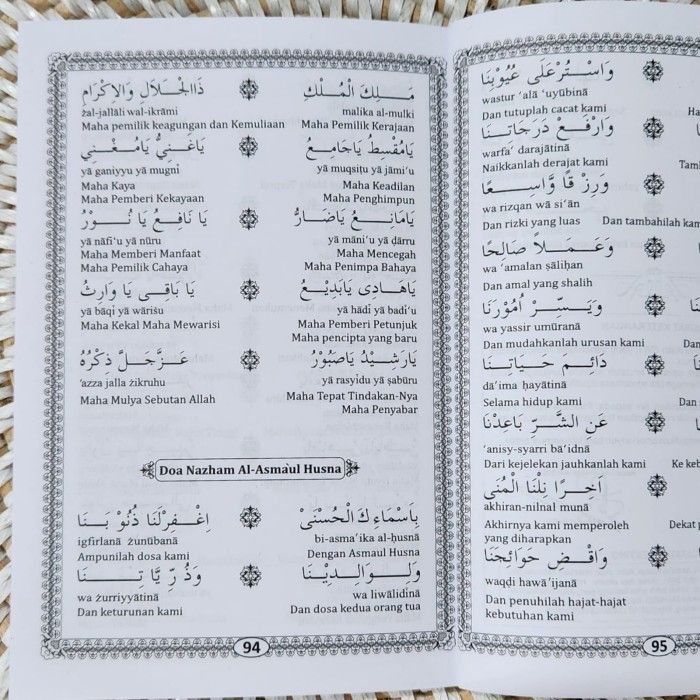 مَـلِكَ الْمُـلْكِ
malika al-mulki
Maha Pemilik Kerajaan
ذَاالْجَلَالِ وَالْاِكْرَامِ
żal-jallāli wal-ikrāmi
Maha pemilik keagungan dan Kemuliaan
يَامُقْسِطُ يَاجَامِعُ
yā muqsiṭu yā jāmi'u
Maha Keadilan
Maha Penghimpun
يَاغَنِيُّ يَامُغْنِي
yā ganiyyu yā mugnī
Maha Kaya
Maha Pemberi Kekayaan
يَامَانِـعُ يَاضَآرُّ
yā māni'u yā ḍārru
Maha Mencegah
Maha Penimpa Bahaya
يَا نَافِعُ يَا نُـوْرُ
yā nāfi'u yā nūru
Maha Memberi Manfaat
Maha Pemilik Cahaya
يَاهَـادِى يَابَدِيْـعُ
yā hādī yā badi'u
Maha Pemberi Petunjuk
Maha pencipta yang baru
يَا بَاقِى يَا وَارِثُ
yā bāqī yā wāriśu
Maha Kekal Maha Mewarisi
يَارَشِـيْدُ يَاصَبُوْرُ
yā rasyīdu yā ṣabūru
Maha Tepat Tindakan-Nya
Maha Penyabar
عَـزَّجَلَّ ذِكْرُهُ
'azza jalla żikruhu
Maha Mulya Sebutan Allah
Doa Nazham Al-Asmaùl Husna
بِاَسْمَاءِكَ الْحُسْنَى
bi-asma'ika al-ḥusnā
Dengan Asmaul Husna
اِغْـفِرْلَنَا ذُنُوْ بَـنَا
igfirlanā żunūbanā
Ampunilah dosa kami
وَلِـوَالِدِيْـنَا
wa liwālidinā
Dan dosa kedua orang tua
وَذُرِّ يَّا تِـنَا
wa żurriyyātinā
Dan keturunan kami
94
وَاسْتُرْعَلَى عُيُوْبِنَا
wastur 'alā 'uyūbinā
Dan tutuplah cacat kami
وَارْفَعْ دَرَجَاتِنَا
warfa' darajātinā
Naikkanlah derajat kami
وَرِزْ قًا وَّاسِـعًا
wa rizqan wā si'ān
Dan rizki yang luas
Dan tambahilah
وَعَمَـلًا صَالِحًا
wa 'amalan ṣāliḥan
Dan amal yang shalih
وَيَسِّـرْ اُمُوْرَنَا
wa yassir umūranā
Dan mudahkanlah urusan kami
دَائِـمَ حَـيَاتِـنَا
dā'ima ḥayātinā
Selama hidup kami
عَنِ الشَّـرِّ بَاعِدْنَا
'anisy-syarri bā'idnā
Dari kejelekan jauhkanlah kami
اٰخِـرًا نِلْنَا الْمُنَى
akhiran-nilnal munā
Akhirnya kami memperoleh
yang diharapkan
وَاقْـضِ حَوَائِجَنَا
waqdi hawā'ijanā
Dan penuhilah hajat-hajat
kebutuhan kami
95